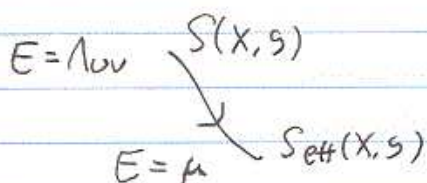 E = Λ_UV S(X, g)
E = μ S_eff(X, g)